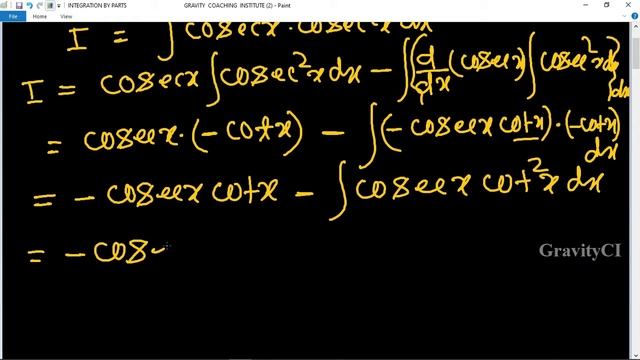 INTEGRATION BY PARTS
GRAVITY COACHING INSTITUTE (2) - Paint
File Home View
I = ∫ cosecx · cosec²x dx
I = cosecx ∫ cosec²x dx − ∫ (d/dx (cosecx) ∫ cosec²x dx) dx
= cosecx · (−cotx) − ∫ (−cosecx cotx) · (−cotx) dx
= − cosecx cotx − ∫ cosecx cot²x dx
= − cos
GravityCI